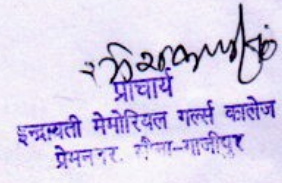 प्राचार्य
इन्द्रावती मेमोरियल गर्ल्स कालेज
प्रेमनगर, गाजीपुर